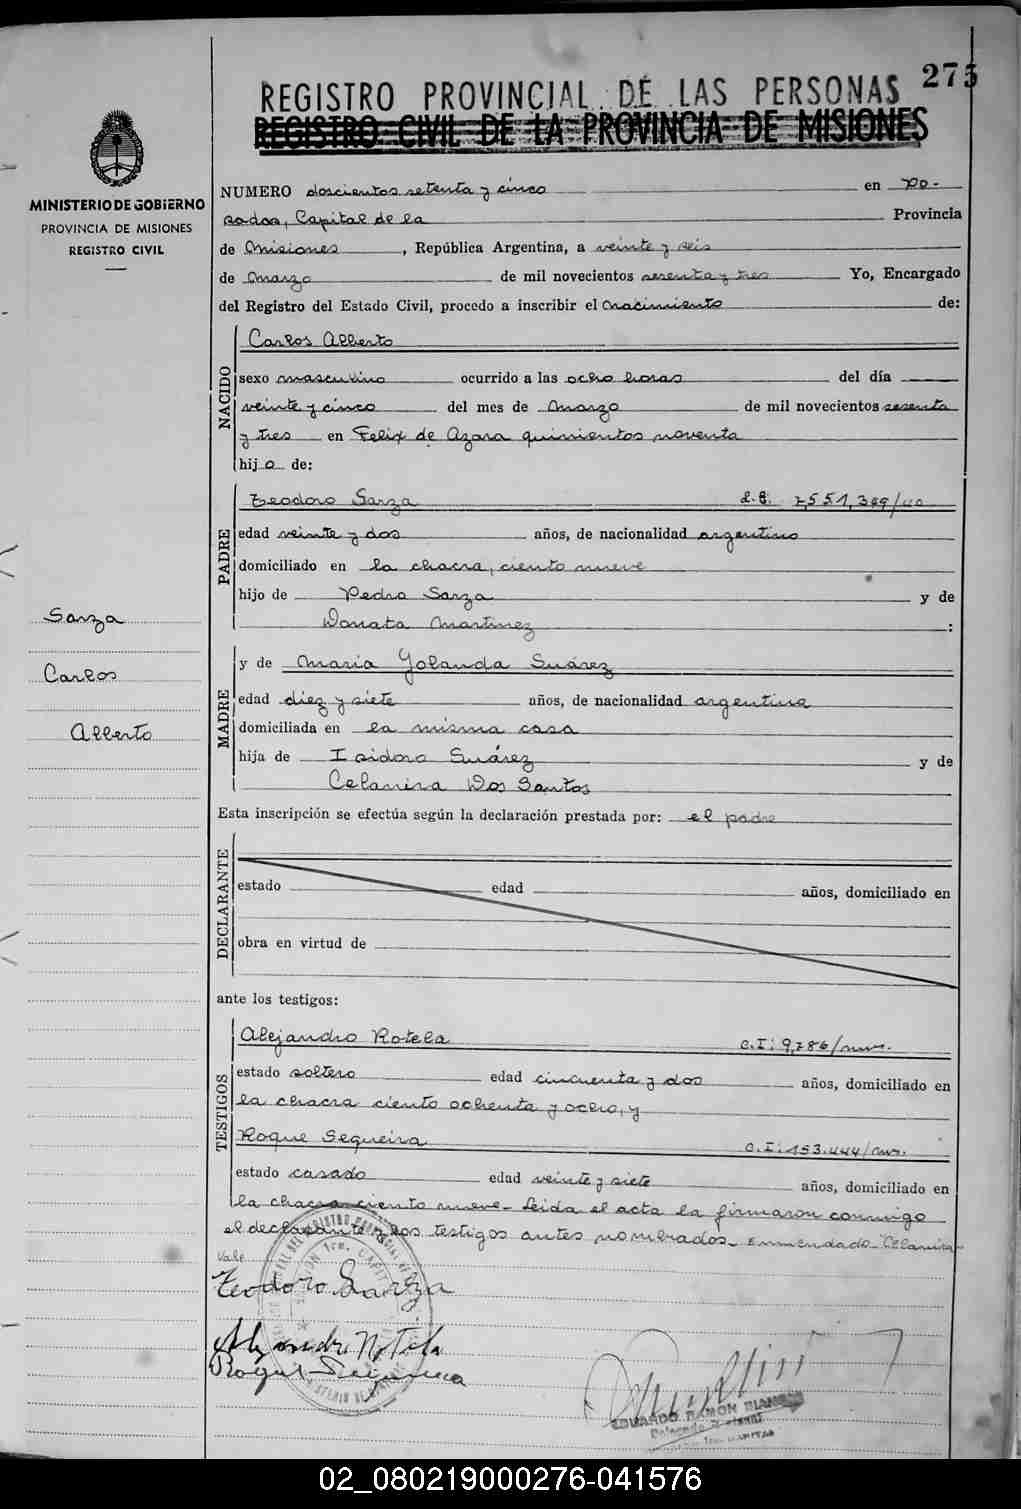 275
REGISTRO PROVINCIAL DE LAS PERSONAS
REGISTRO CIVIL DE LA PROVINCIA DE MISIONES
MINISTERIO DE GOBIERNO
PROVINCIA DE MISIONES
REGISTRO CIVIL
NUMERO doscientos setenta y cinco en Po-
sadas, Capital de la Provincia
de Misiones, República Argentina, a veinte y seis
de Marzo de mil novecientos sesenta y tres Yo, Encargado
del Registro del Estado Civil, procedo a inscribir el nacimiento de:
NACIDO
Carlos Alberto
sexo masculino ocurrido a las ocho horas del día
veinte y cinco del mes de Marzo de mil novecientos sesenta
y tres en Felix de Azara quinientos noventa
hijo de:
PADRE
Teodoro Sarza
edad veinte y dos años, de nacionalidad argentino
domiciliado en la chacra, ciento nueve
hijo de Pedro Sarza y de
Donata Martinez :
Sarza
Carlos
Alberto
MADRE
y de Maria Yolanda Suárez
edad diez y siete años, de nacionalidad argentina
domiciliada en la misma casa
hija de Isidoro Suárez y de
Celanira Dos Santos
Esta inscripción se efectúa según la declaración prestada por: el padre
DECLARANTE
estado edad años, domiciliado en
obra en virtud de
ante los testigos:
TESTIGOS
Alejandro Rotela C.I: 9,786/mns.
estado soltero edad cincuenta y dos años, domiciliado en
la chacra ciento ochenta y ocho, y
Roque Sequeira C.I: 153.444/mns.
estado casado edad veinte y siete años, domiciliado en
la chacra ciento nueve- Leida el acta la firmaron conmigo
el declarante y los testigos antes nombrados- Enmendado- Celanira-
Vale
Teodoro Sarza
Alejandro Rotela
Roque Sequeira
EDUARDO RAMON
02_080219000276-041576